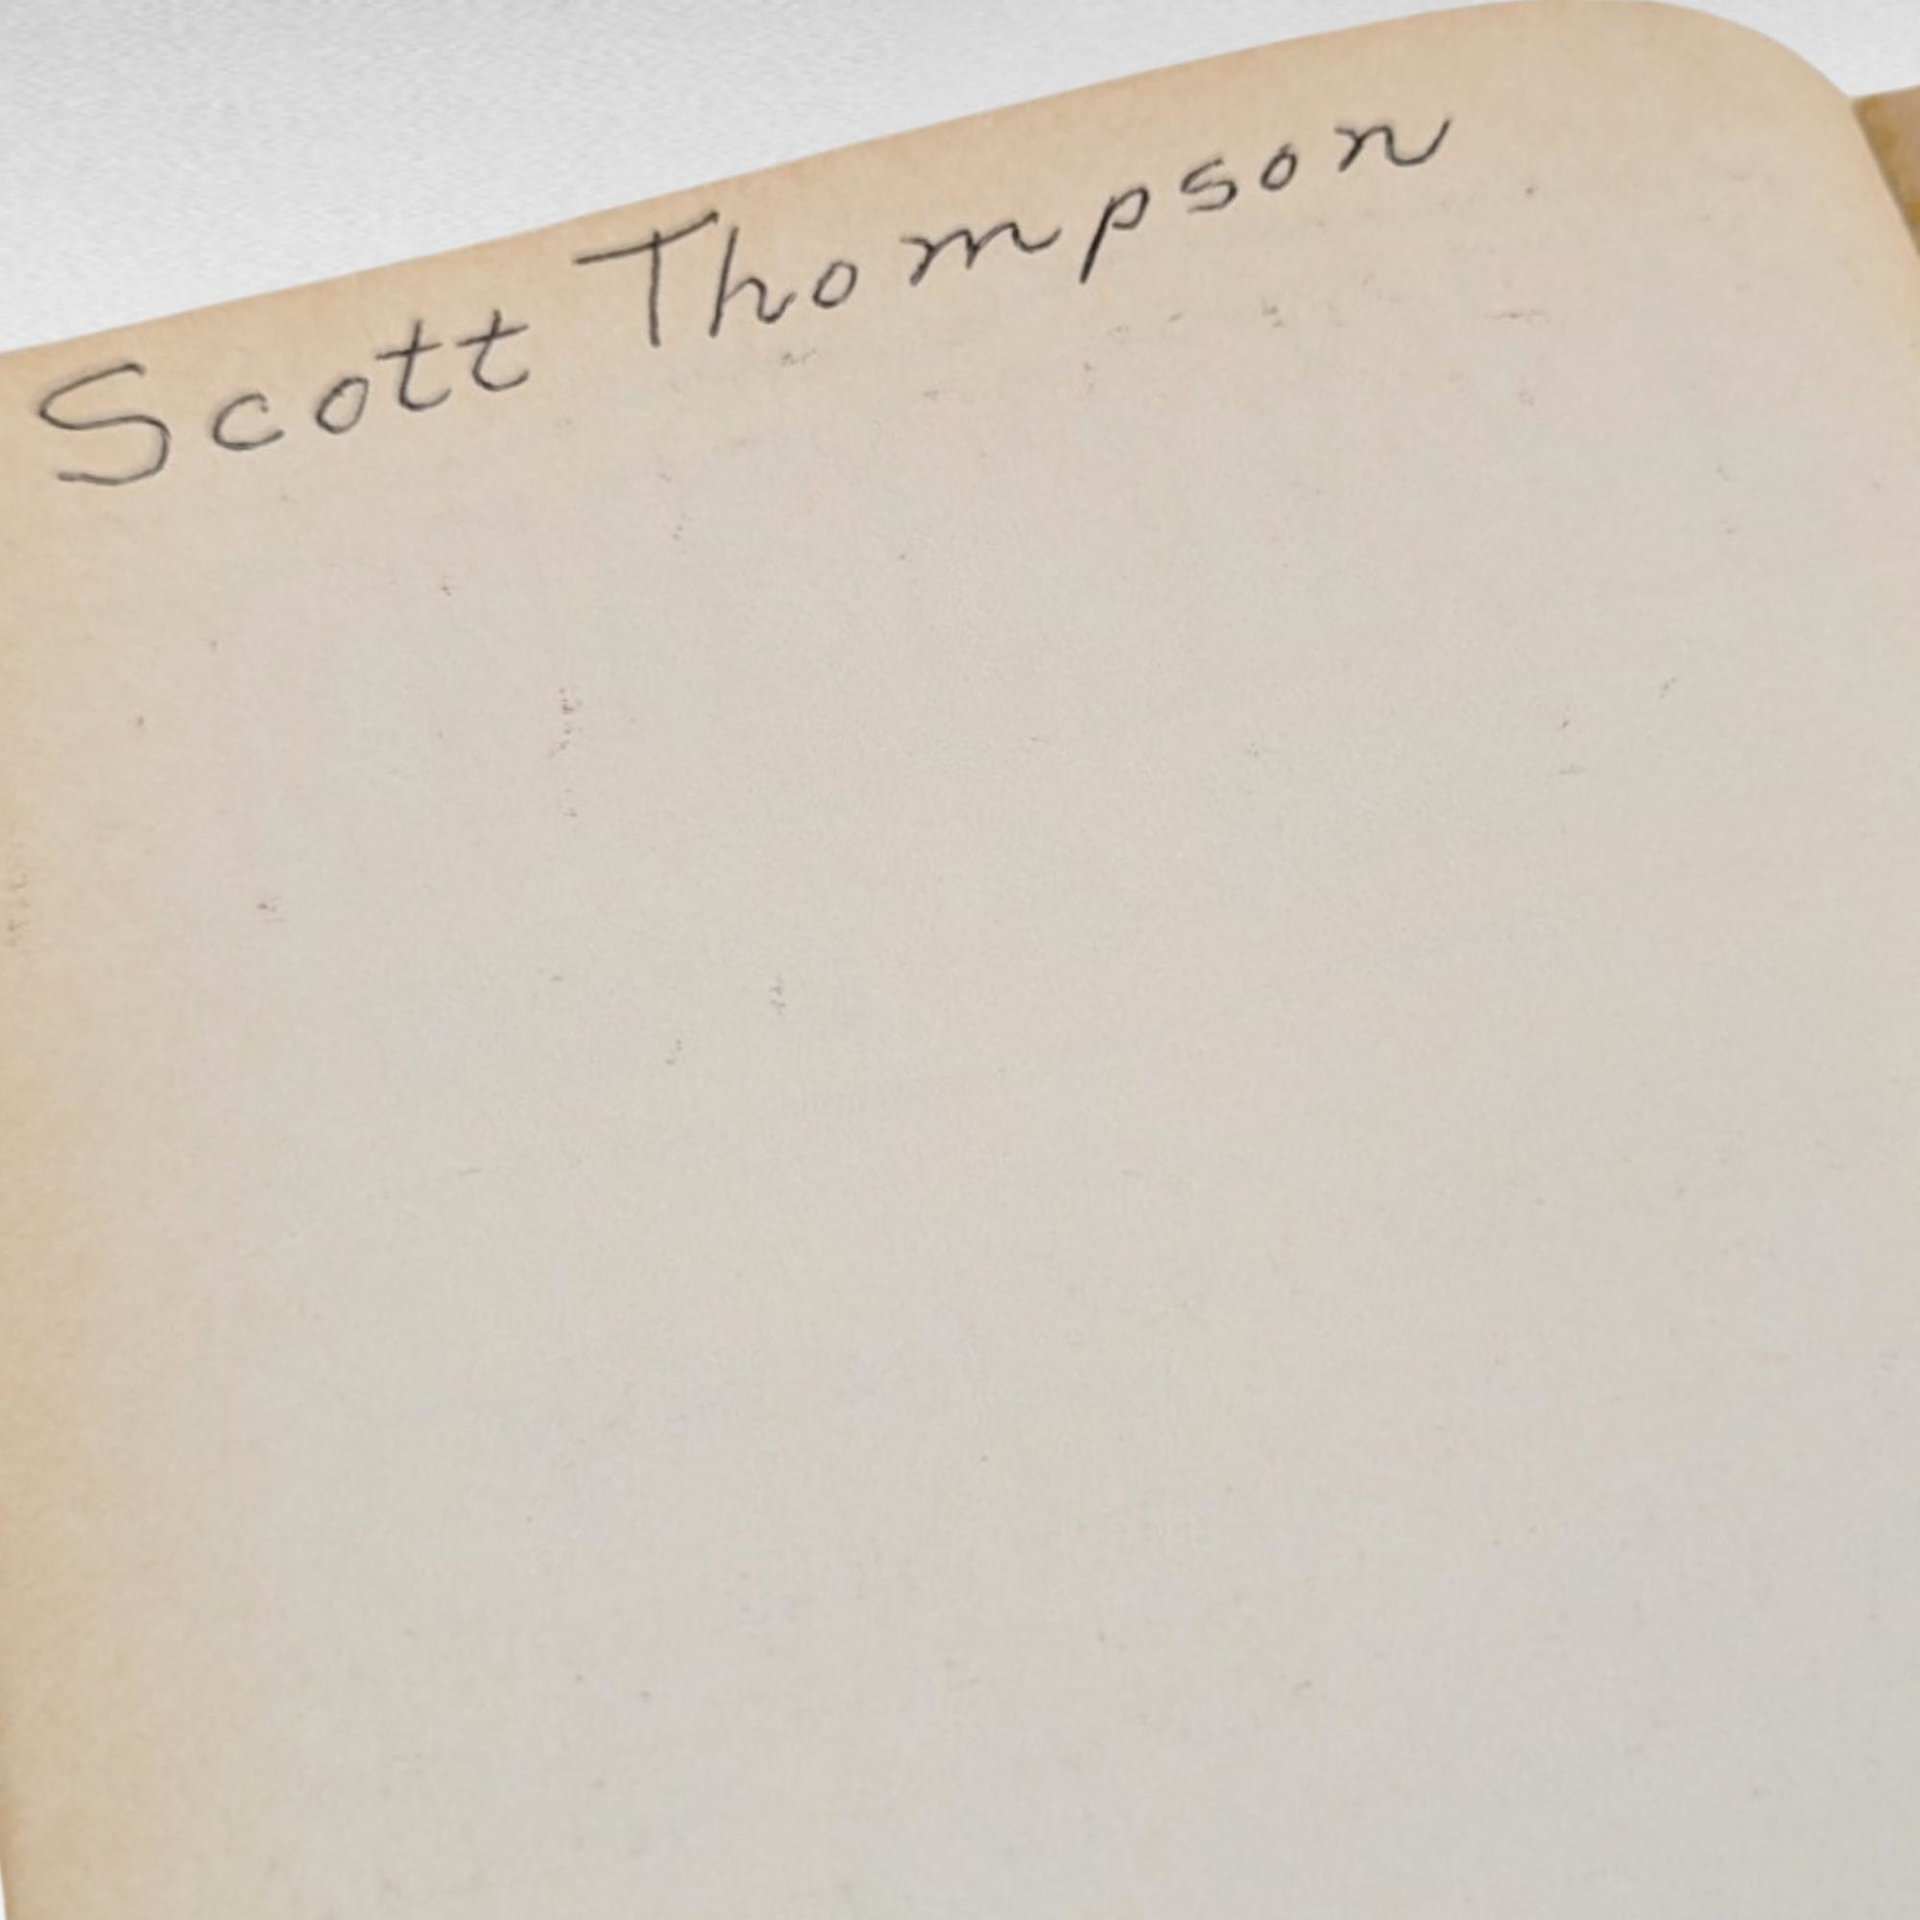 Scott Thompson